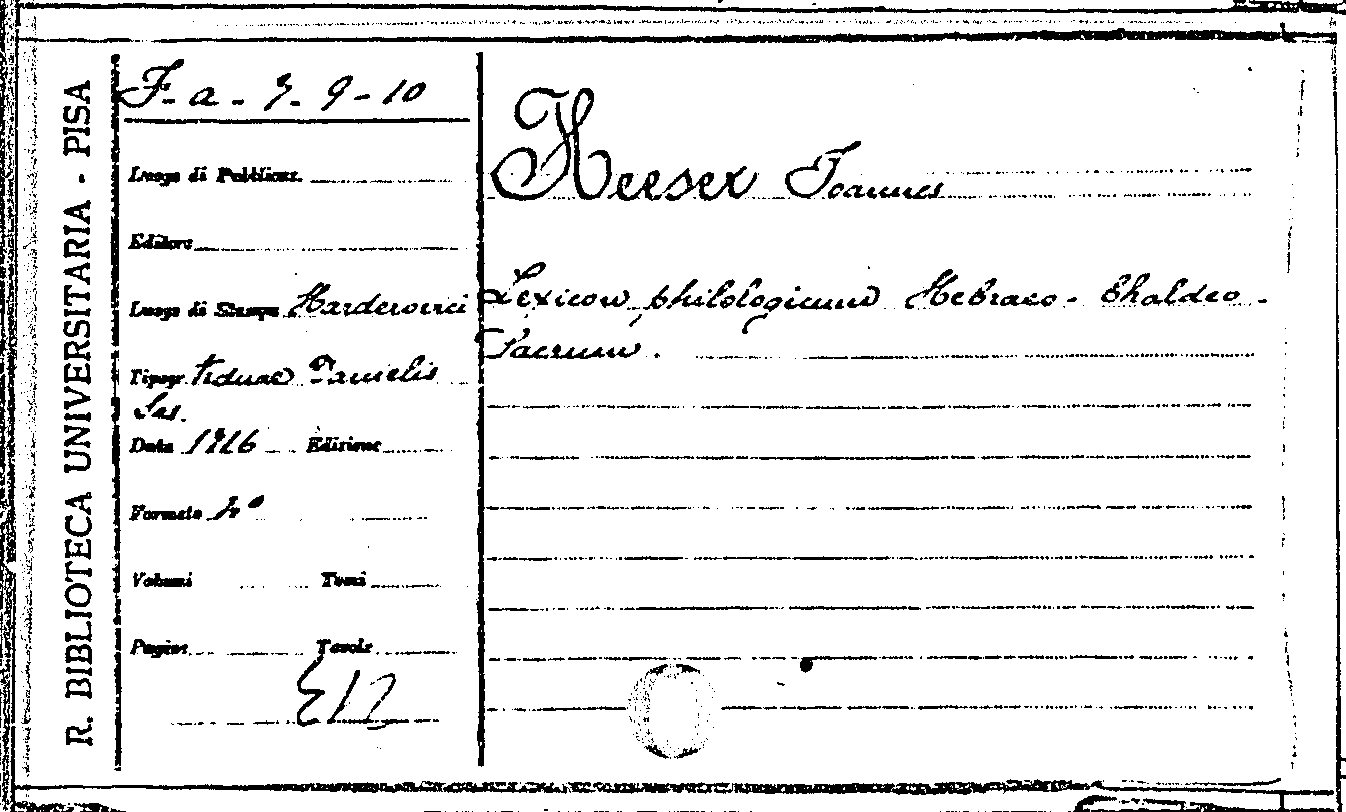 R. BIBLIOTECA UNIVERSITARIA - PISA
F. a. 7. 9-10
Luogo di Pubblicaz.
Editore
Luogo di Stampa Harderovici
Tipogr. Viduae Danielis
Data Edizione
Formato 4°
Volumi Tomi
Pagine Tavole
Heeser Joannes
Lexicon philologicum Hebraeo - Chaldeo -
Sacrum.